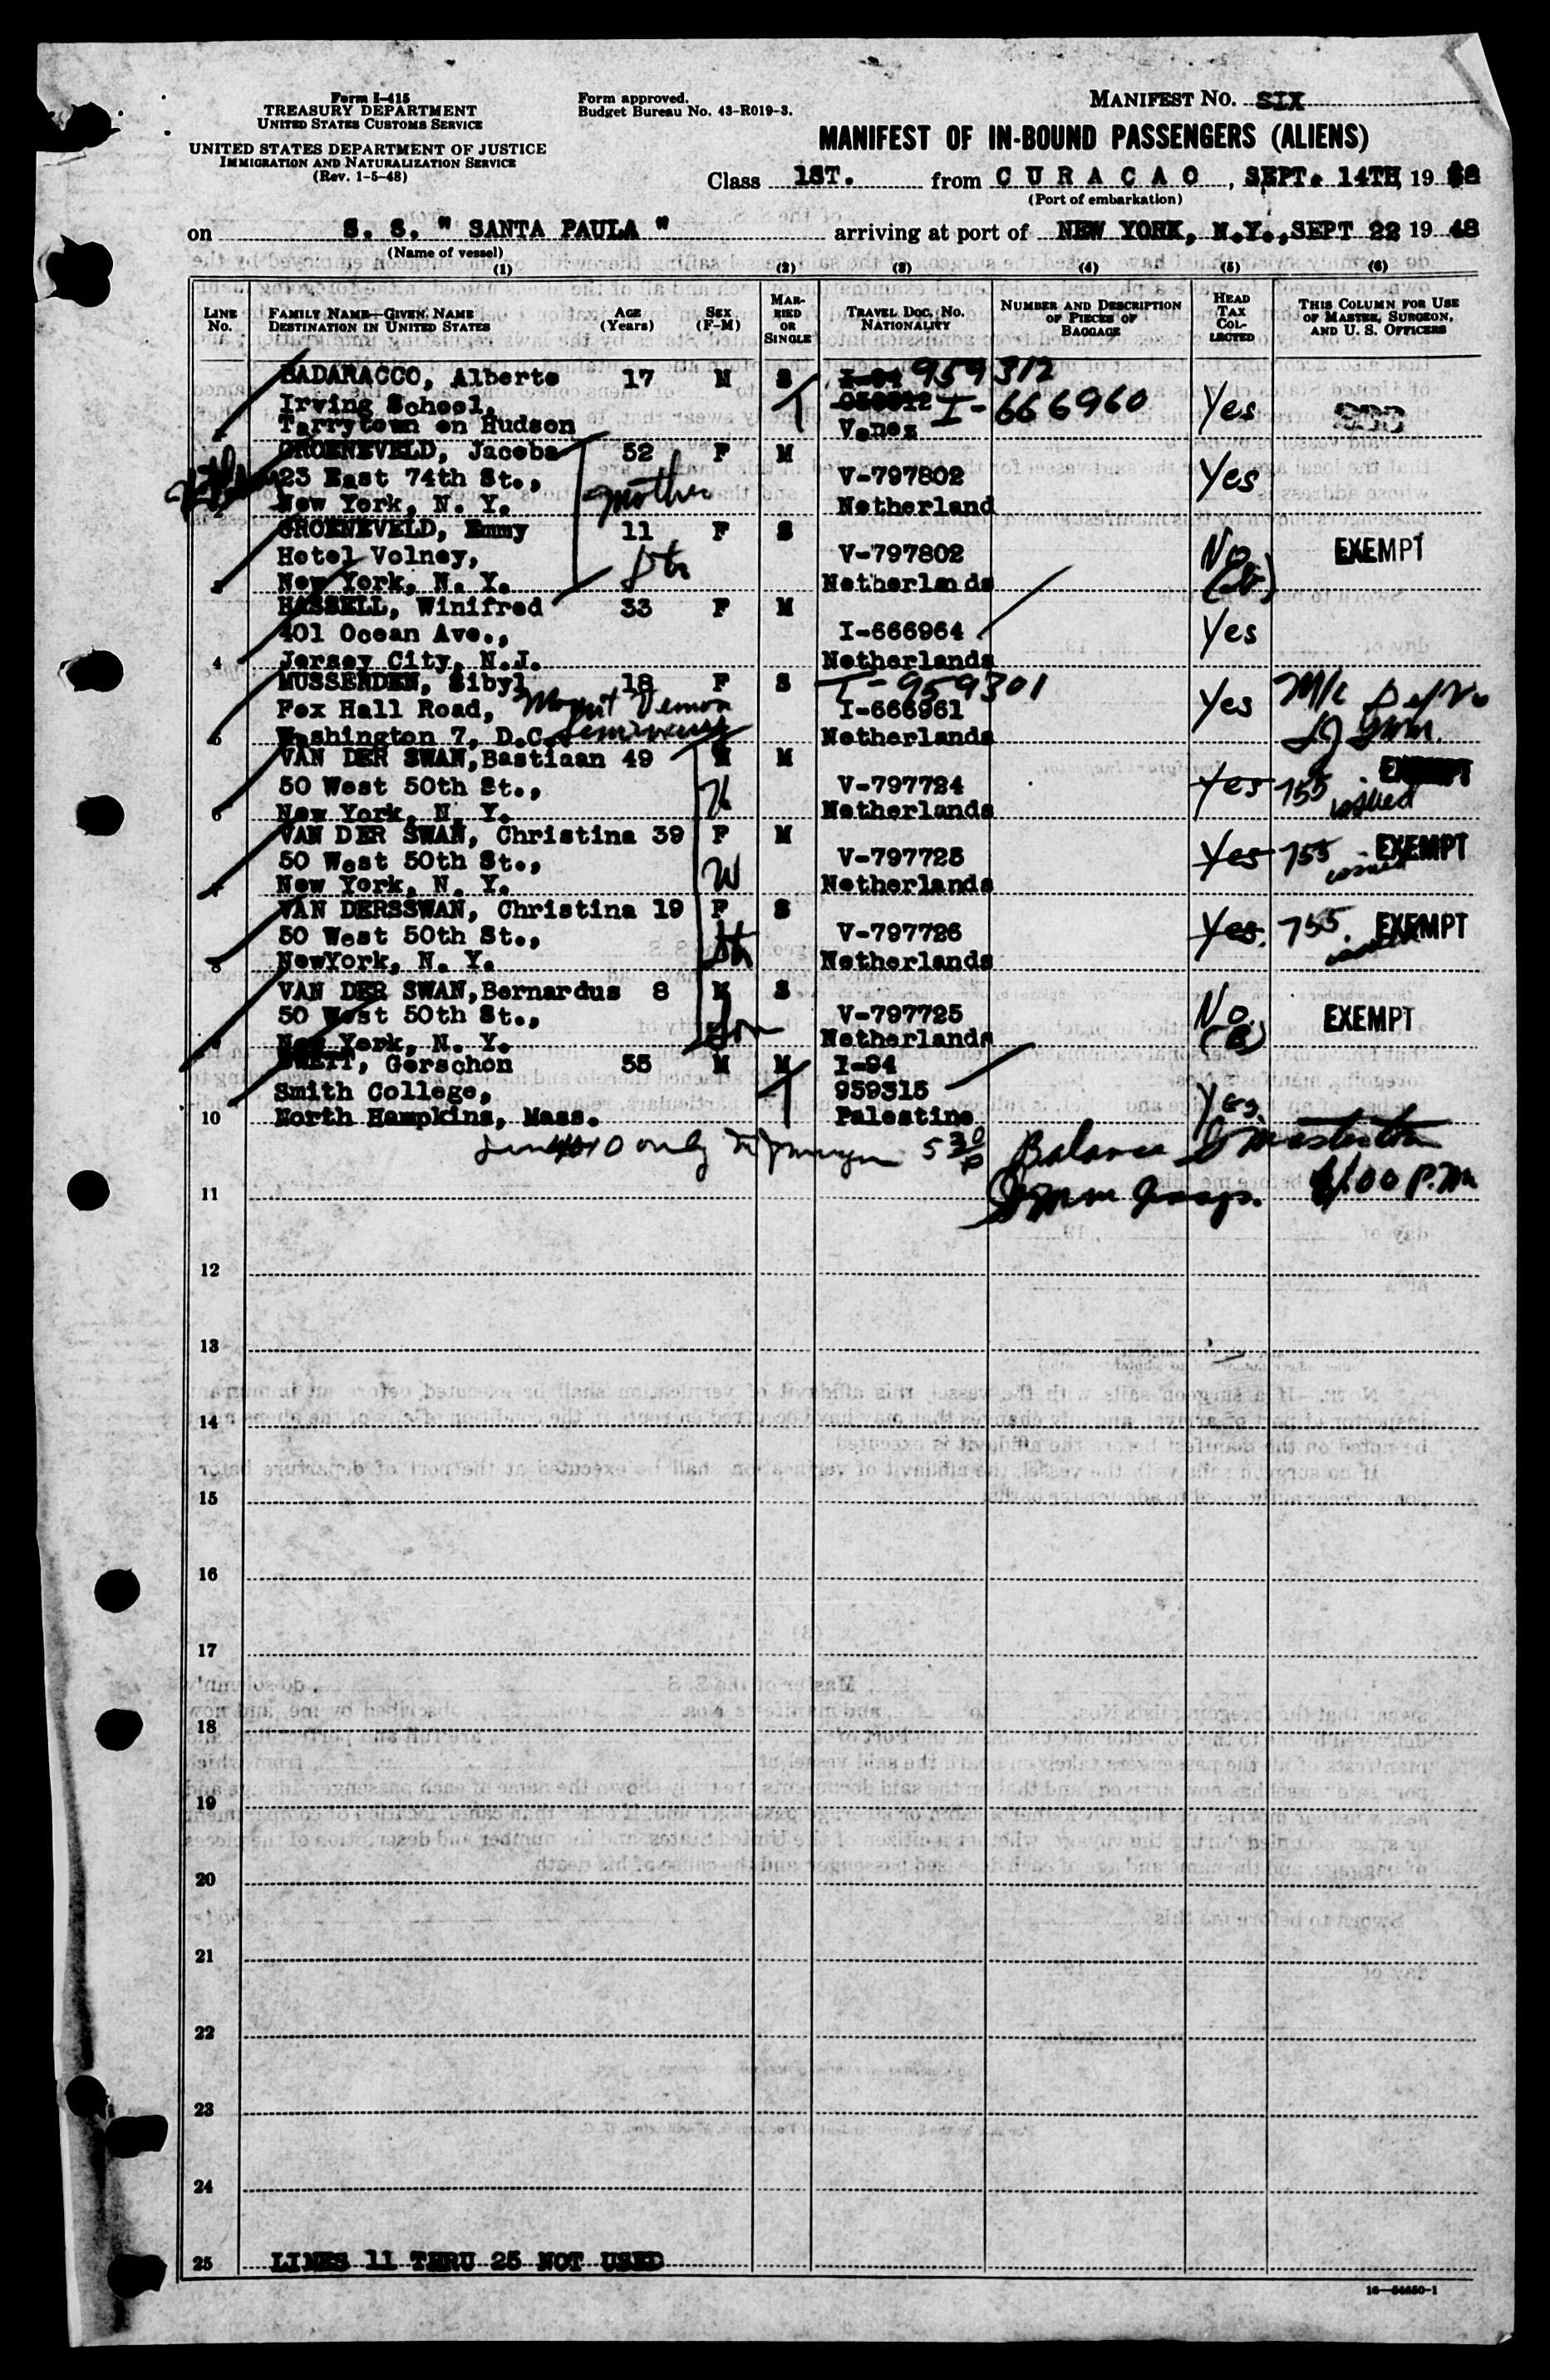 Form I-415
TREASURY DEPARTMENT
UNITED STATES CUSTOMS SERVICE
UNITED STATES DEPARTMENT OF JUSTICE
IMMIGRATION AND NATURALIZATION SERVICE
(Rev. 1-5-48)
Form approved.
Budget Bureau No. 43-R019-3.
MANIFEST NO. SIX
MANIFEST OF IN-BOUND PASSENGERS (ALIENS)
Class 1ST. from C U R A C A O, SEPT. 14TH 19 48
(Port of embarkation)
on S. S. " SANTA PAULA " arriving at port of NEW YORK, N.Y., SEPT 22 19 48
(Name of vessel)
(1) (2) (3) (4) (5) (6)
LINE No.
FAMILY NAME—GIVEN NAME
DESTINATION IN UNITED STATES
AGE (Years)
SEX (F-M)
MARRIED OR SINGLE
TRAVEL DOC. NO. NATIONALITY
NUMBER AND DESCRIPTION OF PIECES OF BAGGAGE
HEAD TAX COLLECTED
THIS COLUMN FOR USE OF MASTER, SURGEON, AND U. S. OFFICERS
BADARACCO, Alberto 17 M S I-94 959312
Irving School, 959312 I-666960 Yes
Tarrytown on Hudson Venez
GROENEVELD, Jacoba 52 F M
23 East 74th St., Mother V-797802 Yes
2 New York, N. Y. Netherland
GROENEVELD, Emmy 11 F S
Hotel Volney, Dtr V-797802 No EXEMPT
3 New York, N. Y. Netherlands
HASSELL, Winifred 33 F M
401 Ocean Ave., I-666964 Yes
4 Jersey City, N.J. Netherlands
MUSSENDEN, Sibyl 18 F S I-959301
Fox Hall Road, Mount Vernon I-666961 Yes
5 Washington 7, D.C. Seminary Netherlands
VAN DER SWAN, Bastiaan 49 M M EXEMPT
50 West 50th St., H V-797724 Yes 755 issued
6 New York, N. Y. Netherlands
VAN DER SWAN, Christina 39 F M
50 West 50th St., W V-797725 Yes 755 issued EXEMPT
New York, N. Y. Netherlands
VAN DERSSWAN, Christina 19 F S
50 West 50th St., Dtr V-797726 Yes. 755. issued EXEMPT
8 NewYork, N. Y. Netherlands
VAN DER SWAN, Bernardus 8 M S
50 West 50th St., Son V-797725 No. EXEMPT
9 New York, N. Y. Netherlands
Gerschon 55 M M I-94
Smith College, 959315 Yes.
10 North Hampkins, Mass. Palestine
only 5 30 P Balance
11 Imm Insp. 6/00 P.M
12
13
14
15
16
17
18
19
20
21
22
23
24
25 LINES 11 THRU 25 NOT USED